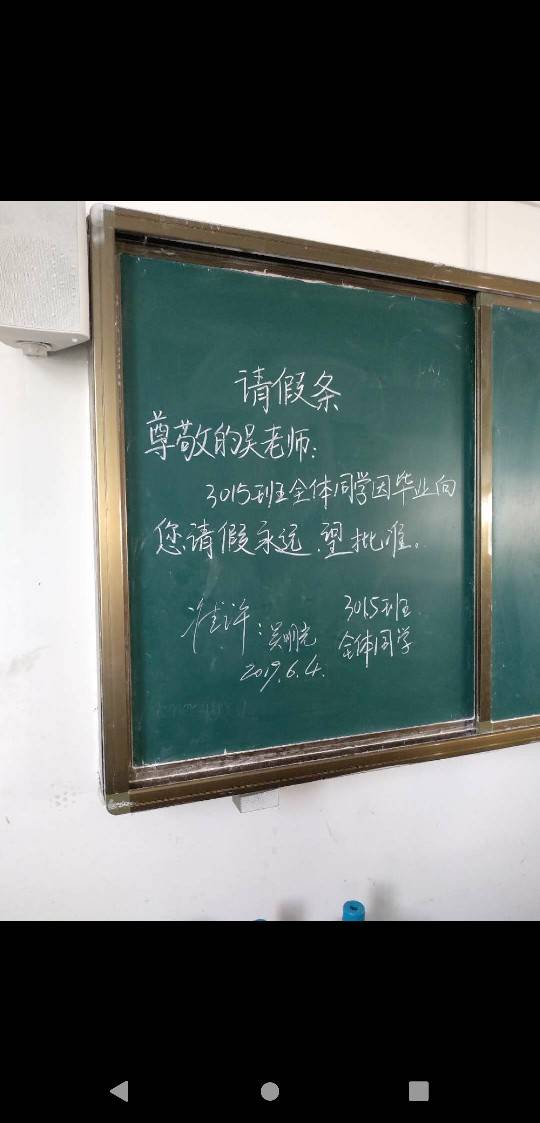 请假条
尊敬的吴老师：
3015班全体同学因毕业向
您请假永远，望批准。
准许：吴明老 3015班
2019.6.4. 全体同学